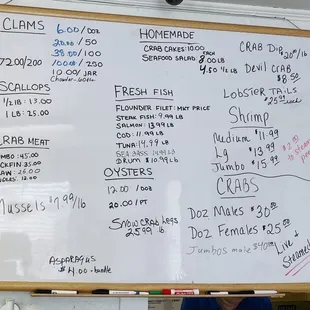 CLAMS
6.00/DOZ
20.00/50
38.00/100
72.00/200
10.00/JAR
Chowder-
SCALLOPS
1/2 lB : 13.00
1 LB : 25.00
CRAB MEAT
JUMBO : 45.00
BACKFIN 35.00
CLAW . 26.00
12.00
Mussels $7.99/lb
HOMEMADE
CRAB CAKES : 10.00
SEAFOOD SALAD : 8.00 LB
4.50 1/2 LB
FRESH FISH
FLOUNDER FILET: MKT PRICE
STEAK FISH: 9.99 LB
SALMON: 13.99 LB
COD: 11.99 LB
TUNA: 14.99 LB
SEA BASS 14.99 LB
DRUM $10.99 LB
OYSTERS
12.00 / DOZ
20.00 / PT
SNOW CRAB Legs
25.99 LB.
ASPARAGUS
$4.00 -bundle
CRAB Dip $20.00/lb
Devil Crab
$8.50
LObsteR TAiLS
$25.00 each
Shrimp
Medium $11.99
Lg $13.99
Jumbo $15.99
$2.00
to steam
CRABS
Doz Males $30.00
Doz Females $25.00
Jumbos male $40.00
Live or
Steamed